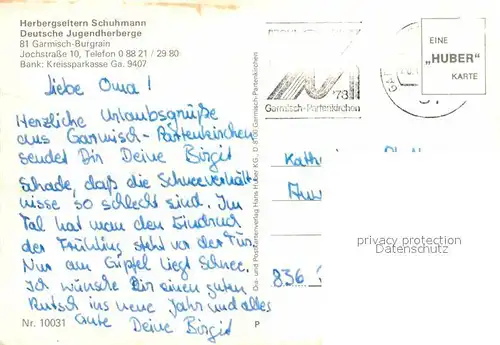 Herbergseltern Schuhmann
Deutsche Jugendherberge
81 Garmisch-Burgrain
Jochstraße 10, Telefon 0 88 21 / 29 80
Bank: Kreissparkasse Ga. 9407
Liebe Oma!
Herzliche Urlaubsgrüße
aus Garmisch-Partenkirchen
sendet Dir Deine Birgit
Schade, daß die Schneeverhält
nisse so schlecht sind. Im
Tal hat man den Eindruck
der Frühling steht vor der Tür.
Nur am Gipfel liegt Schnee.
Ich wünsche Dir einen guten
Rutsch ins neue Jahr und alles
Gute Deine Birgit
Nr. 10031
P
Da- und Postkartenverlag Hans Huber KG., D 8100 Garmisch-Partenkirchen
'78
Garmisch-Partenkirchen
EINE
„HUBER"
KARTE
Kath
836
privacy protection
Datenschutz